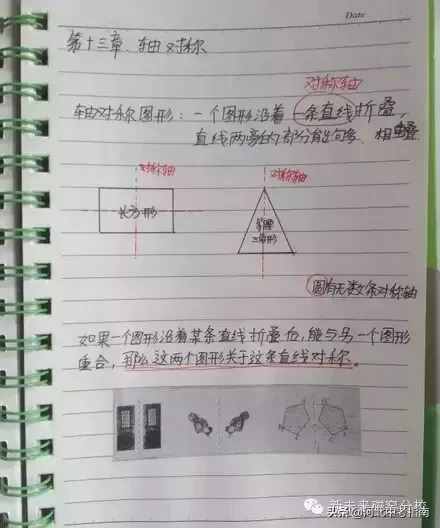 Date
第十三章、轴对称
对称轴
轴对称图形：一个图形沿着一条直线折叠，
直线两旁的部分能够互相重叠
对称轴
对称轴
长方形
等腰
三角形
圆有无数条对称轴
如果一个图形沿着某条直线折叠后，能与另一个图形
重合，那么这两个图形关于这条直线对称。
新未来研究分校
头条@河北中考指南